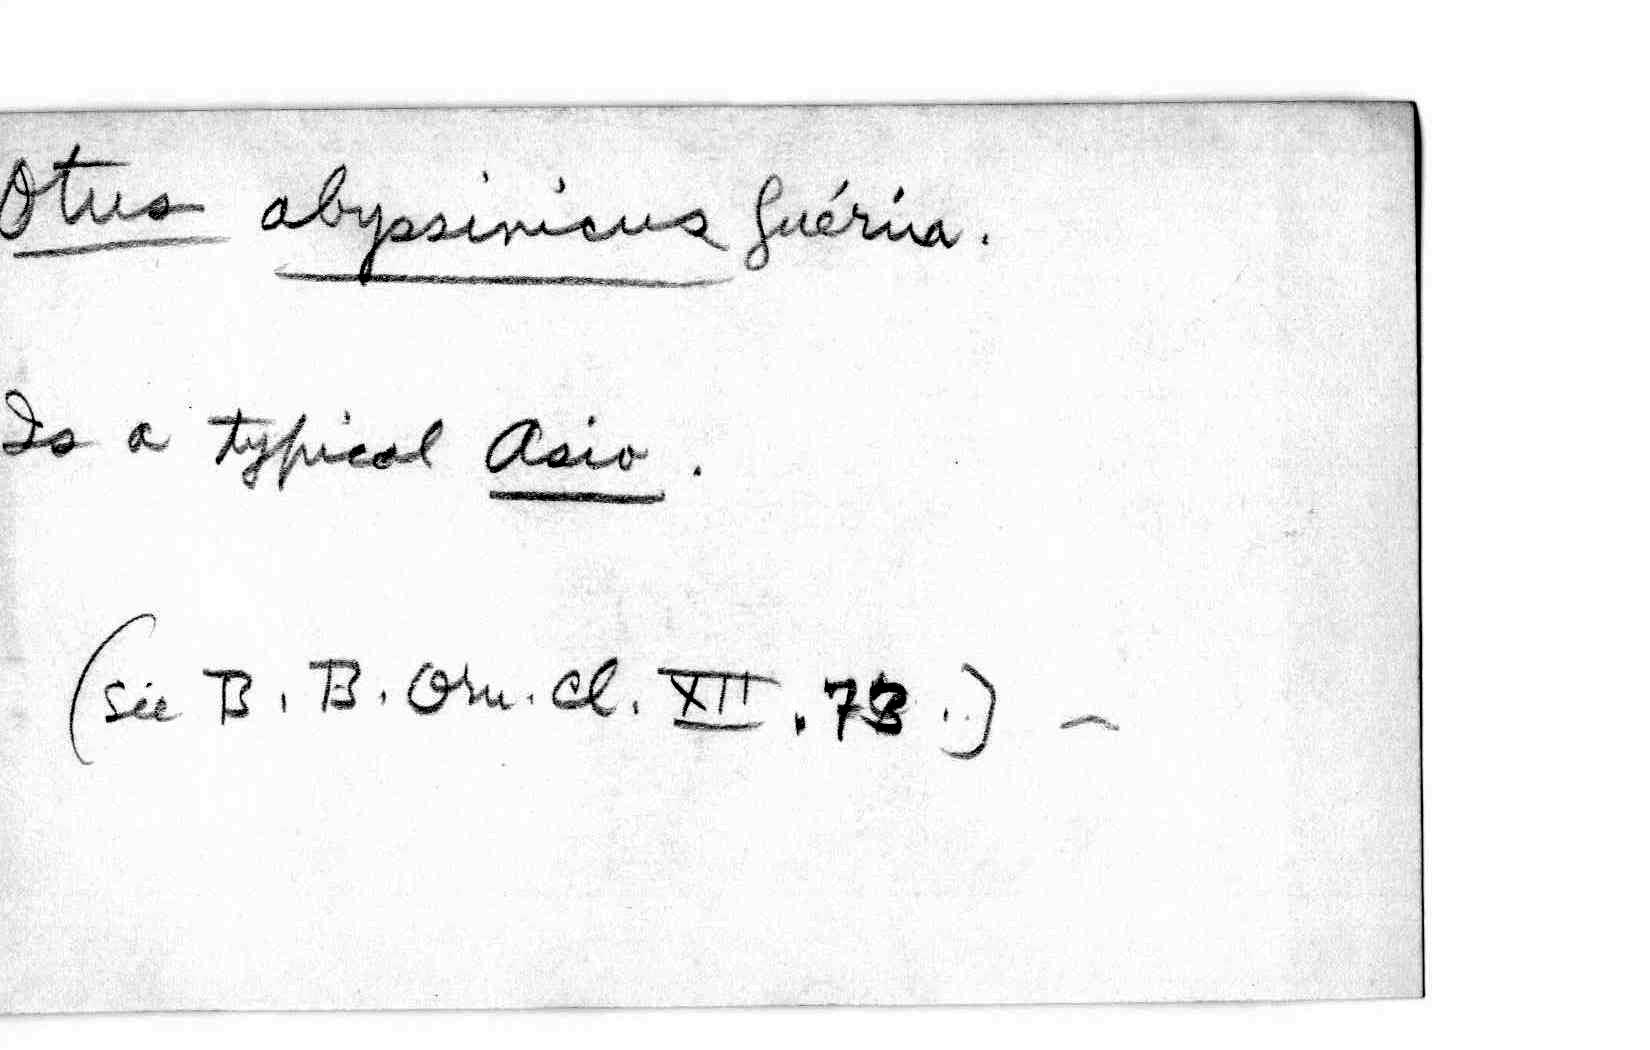 Otus abyssinicus Guérin.
Is a typical Asio.
(see B. B. Orn. Cl. XII. 73.)